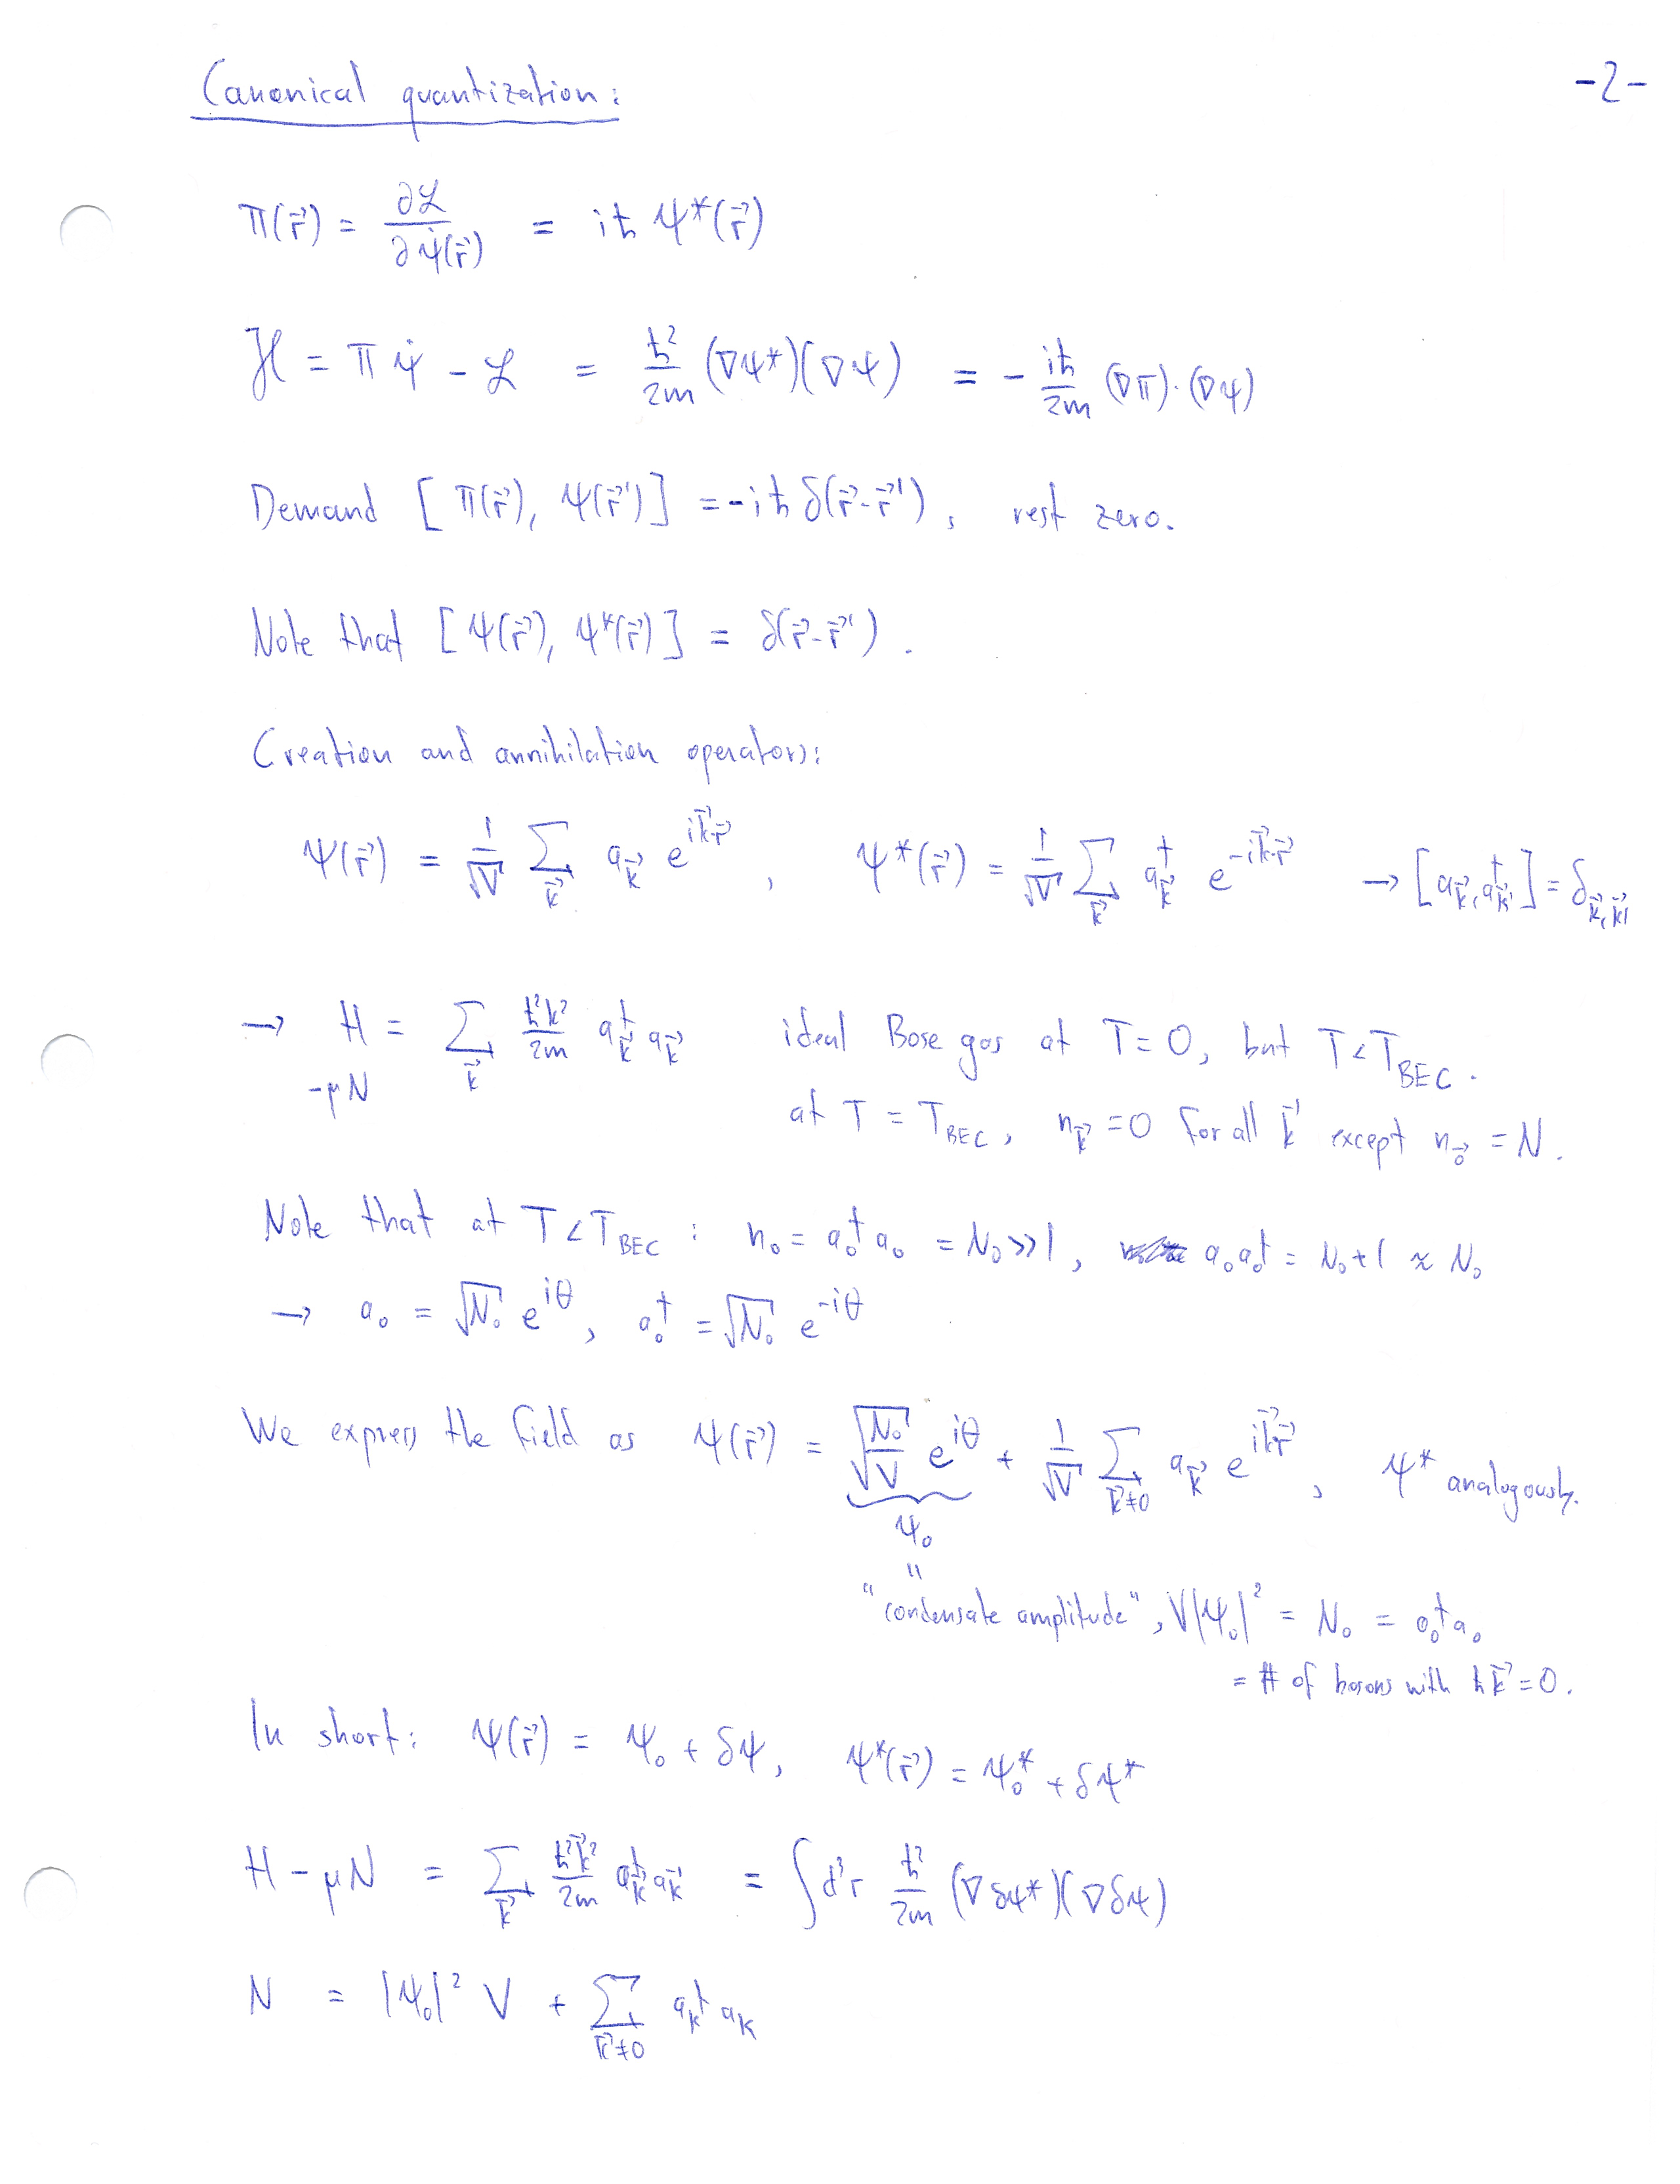 Canonical quantization:
-2-
π(r⃗) = ∂ℒ/∂ψ̇(r⃗) = iħ ψ*(r⃗)
ℋ = π ψ̇ - ℒ = ħ²/2m (∇ψ*)(∇ψ) = - iħ/2m (∇π)·(∇ψ)
Demand [π(r⃗), ψ(r⃗')] = -iħ δ(r⃗-r⃗'), rest zero.
Note that [ψ(r⃗), ψ*(r⃗)] = δ(r⃗-r⃗').
Creation and annihilation operators:
ψ(r⃗) = 1/√V ∑_k⃗ a_k⃗ e^{ik⃗r⃗}, ψ*(r⃗) = 1/√V ∑_k⃗ a†_k⃗ e^{-ik⃗r⃗} → [a_k⃗, a†_k⃗'] = δ_{k⃗,k⃗'}
→ H = ∑_k⃗ ħ²k²/2m a†_k⃗ a_k⃗ ideal Bose gas at T=0, but T<T_BEC.
-μN
at T = T_BEC, n_k⃗ = 0 for all k⃗ except n_0⃗ = N.
Note that at T<T_BEC : n₀ = a₀†a₀ = N₀ >> 1, a₀a₀† = N₀+1 ≈ N₀
→ a₀ = √N₀ e^{iθ}, a₀† = √N₀ e^{-iθ}
We express the field as ψ(r⃗) = √(N₀/V) e^{iθ} + 1/√V ∑_{k⃗≠0} a_k⃗ e^{ik⃗r⃗}, ψ* analogously.
ψ₀
"
"condensate amplitude", V|ψ₀|² = N₀ = a₀†a₀
= # of bosons with ħk⃗ = 0.
In short: ψ(r⃗) = ψ₀ + δψ, ψ*(r⃗) = ψ₀* + δψ*
H - μN = ∑_k⃗ ħ²k⃗²/2m a†_k⃗ a_k⃗ = ∫d³r ħ²/2m (∇δψ*)(∇δψ)
N = |ψ₀|² V + ∑_{k⃗≠0} a_k† a_k